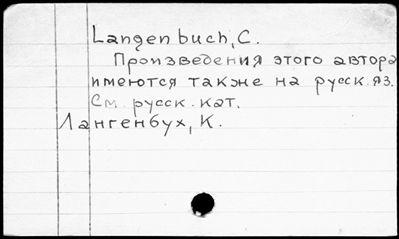 Langenbuch, C.
Произведения этого автора
имеются также на русск. яз.
См. русск. кат.
Лангенбух, К.